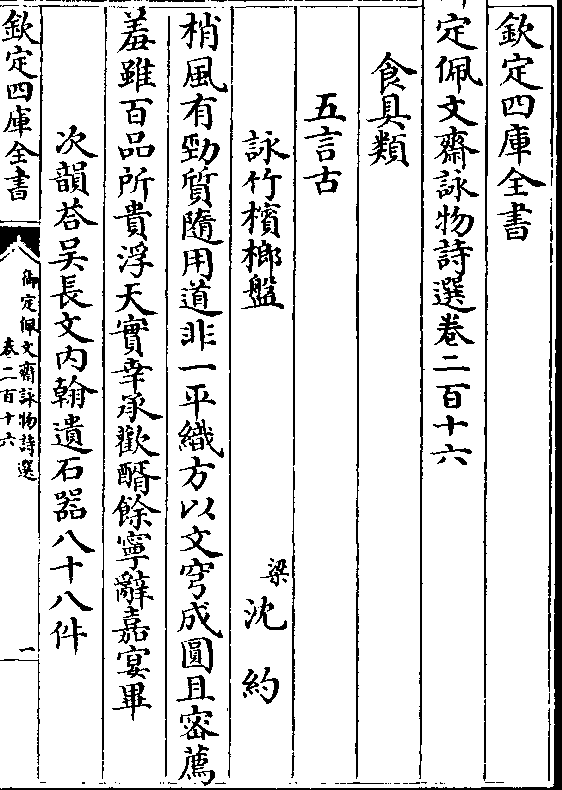 欽定四庫全書
定佩文齋詠物詩選卷二百十六
食具類
五言古
詠竹檳榔盤　梁　沈約
梢風有勁質隨用道非一平織方以文穹成圓且密薦
羞雖百品所貴浮天實幸承歡醑餘寧辭嘉宴畢
次韻荅吴長文内翰遺石器八十八件
欽定四庫全書
御定佩文齋詠物詩選
卷二百十六
一